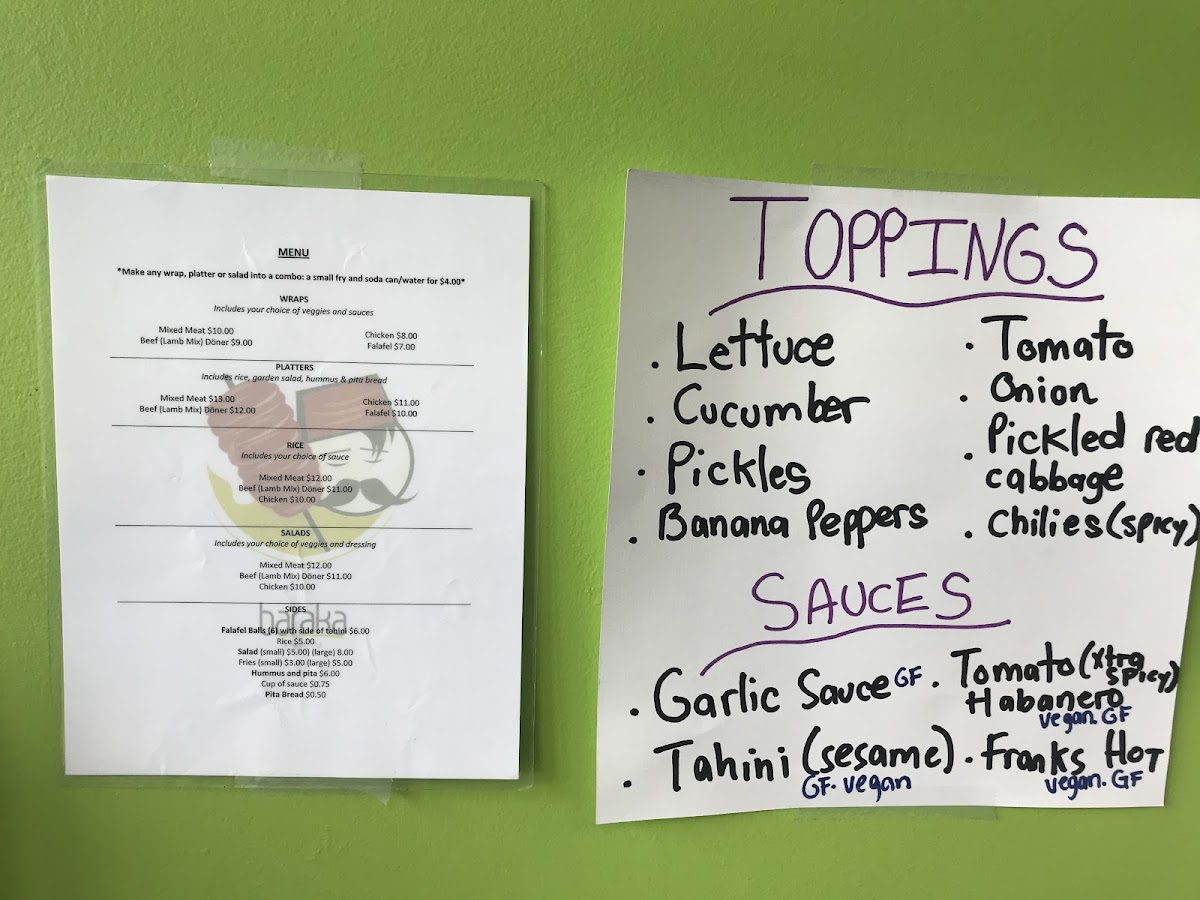 MENU
*Make any wrap, platter or salad into a combo: a small fry and soda can/water for $4.00*
WRAPS
Includes your choice of veggies and sauces
Mixed Meat $10.00
Beef (Lamb Mix) Döner $9.00
Chicken $8.00
Falafel $7.00
PLATTERS
Includes rice, garden salad, hummus & pita bread
Mixed Meat $13.00
Beef (Lamb Mix) Döner $12.00
Chicken $11.00
Falafel $10.00
RICE
Includes your choice of sauce
Mixed Meat $12.00
Beef (Lamb Mix) Döner $11.00
Chicken $10.00
SALADS
Includes your choice of veggies and dressing
Mixed Meat $12.00
Beef (Lamb Mix) Döner $11.00
Chicken $10.00
haraka
SIDES
Falafel Balls (6) with side of tahini $6.00
Rice $5.00
Salad (small) $5.00) (large) 8.00
Fries (small) $3.00 (large) $5.00
Hummus and pita $6.00
Cup of sauce $0.75
Pita Bread $0.50
TOPPINGS
· Lettuce
· Cucumber
· Pickles
· Banana Peppers
· Tomato
· Onion
· Pickled red
cabbage
· Chilies (spicy)
SAUCES
· Garlic Sauce GF
· Tahini (sesame)
GF. vegan
· Tomato (xtra spicy)
Habanero
vegan. GF
· Franks Hot
vegan. GF